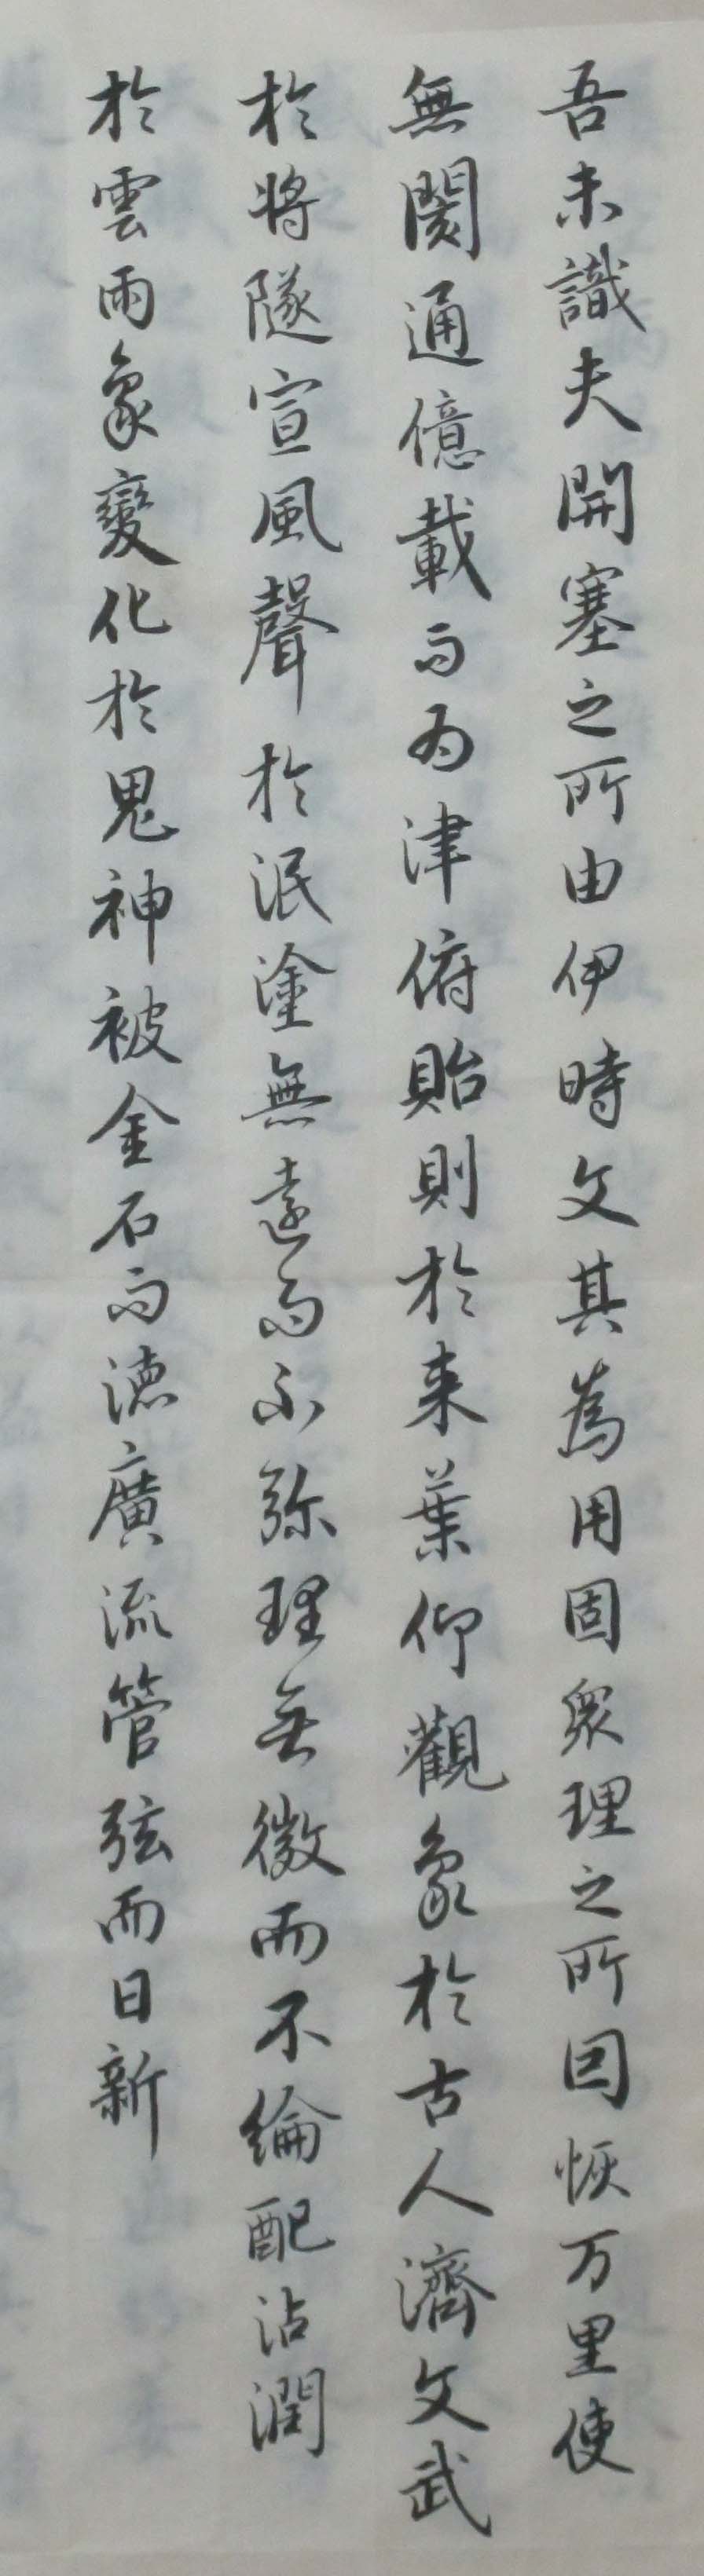 吾未識夫開塞之所由伊時文其為用固衆理之所因恢万里使
無閡通億載而为津俯貽則於来葉仰觀象於古人濟文武
於将隧宣風聲於泯塗無遠而不弥理無微而不綸配沾潤
於雲雨象變化於鬼神被金石而徳廣流管弦而日新